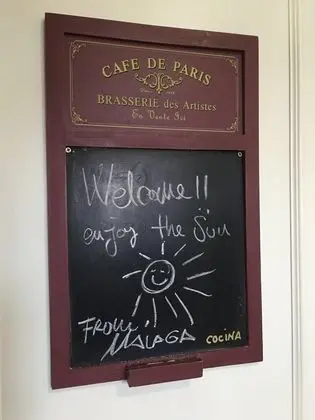 CAFE DE PARIS
BRASSERIE des Artistes
En Vente Ici
Welcome!!
enjoy the Sün
FROM
MÁLAGA
COCINA